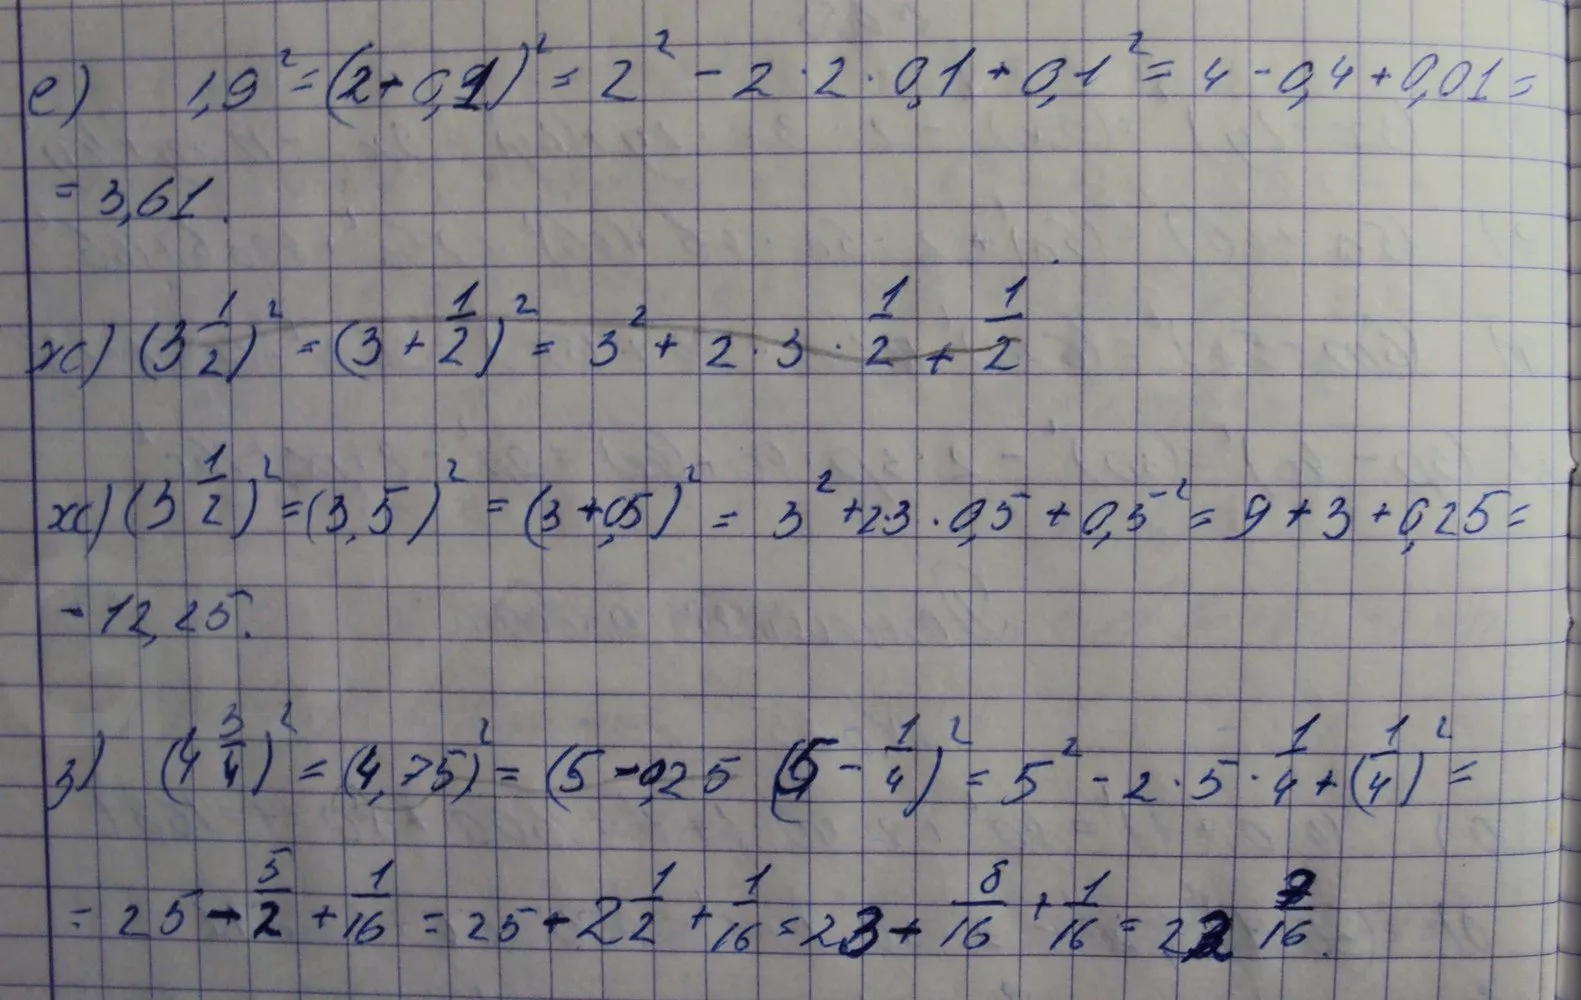 е) 1,9² = (2+0,1)² = 2² - 2·2·0,1 + 0,1² = 4 - 0,4 + 0,01 =
= 3,61.
ж) (3 1/2)² = (3 + 1/2)² = 3² + 2·3·1/2 + 1/2
ж) (3 1/2)² = (3,5)² = (3+0,5)² = 3² + 2 3·0,5 + 0,5² = 9 + 3 + 0,25 =
- 12,25.
з) (4 3/4)² = (4,75)² = (5 - 0,25 (5 - 1/4)² = 5² - 2·5·1/4 + (1/4)² =
= 25 - 5/2 + 1/16 = 25 + 2 1/2 + 1/16 = 23 + 8/16 + 1/16 = 22 9/16.